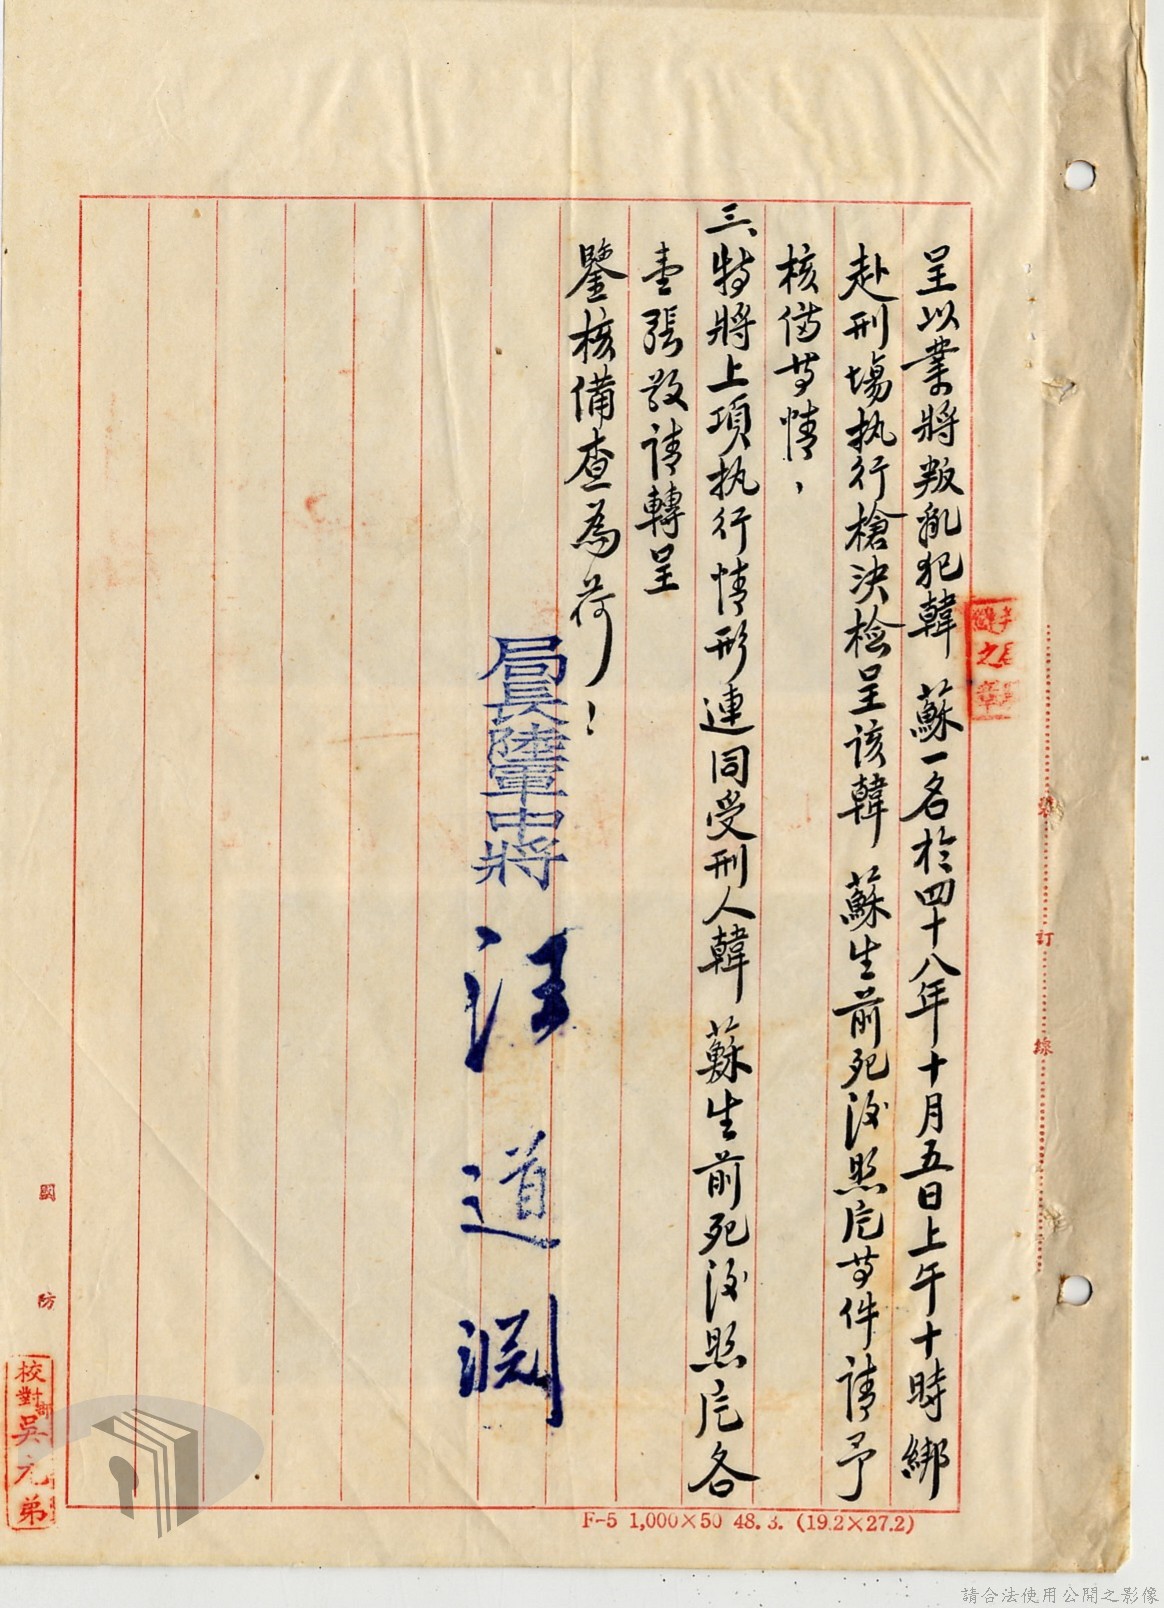 呈以業將叛亂犯韓 蘇一名於四十八年十月五日上午十時綁
赴刑場执行槍決檢呈该韓 蘇生前死後照片等件请予
核備等情，
三、特將上項执行情形連同受刑人韓 蘇生前死後照片各
壹張敬请轉呈
鑒核備查為荷！
局長陸軍中將 汪道淵
縫之章
裝訂線
國防部
校對吳元弟
F-5 1,000×50 48.3. (19.2×27.2)
請合法使用公開之影像